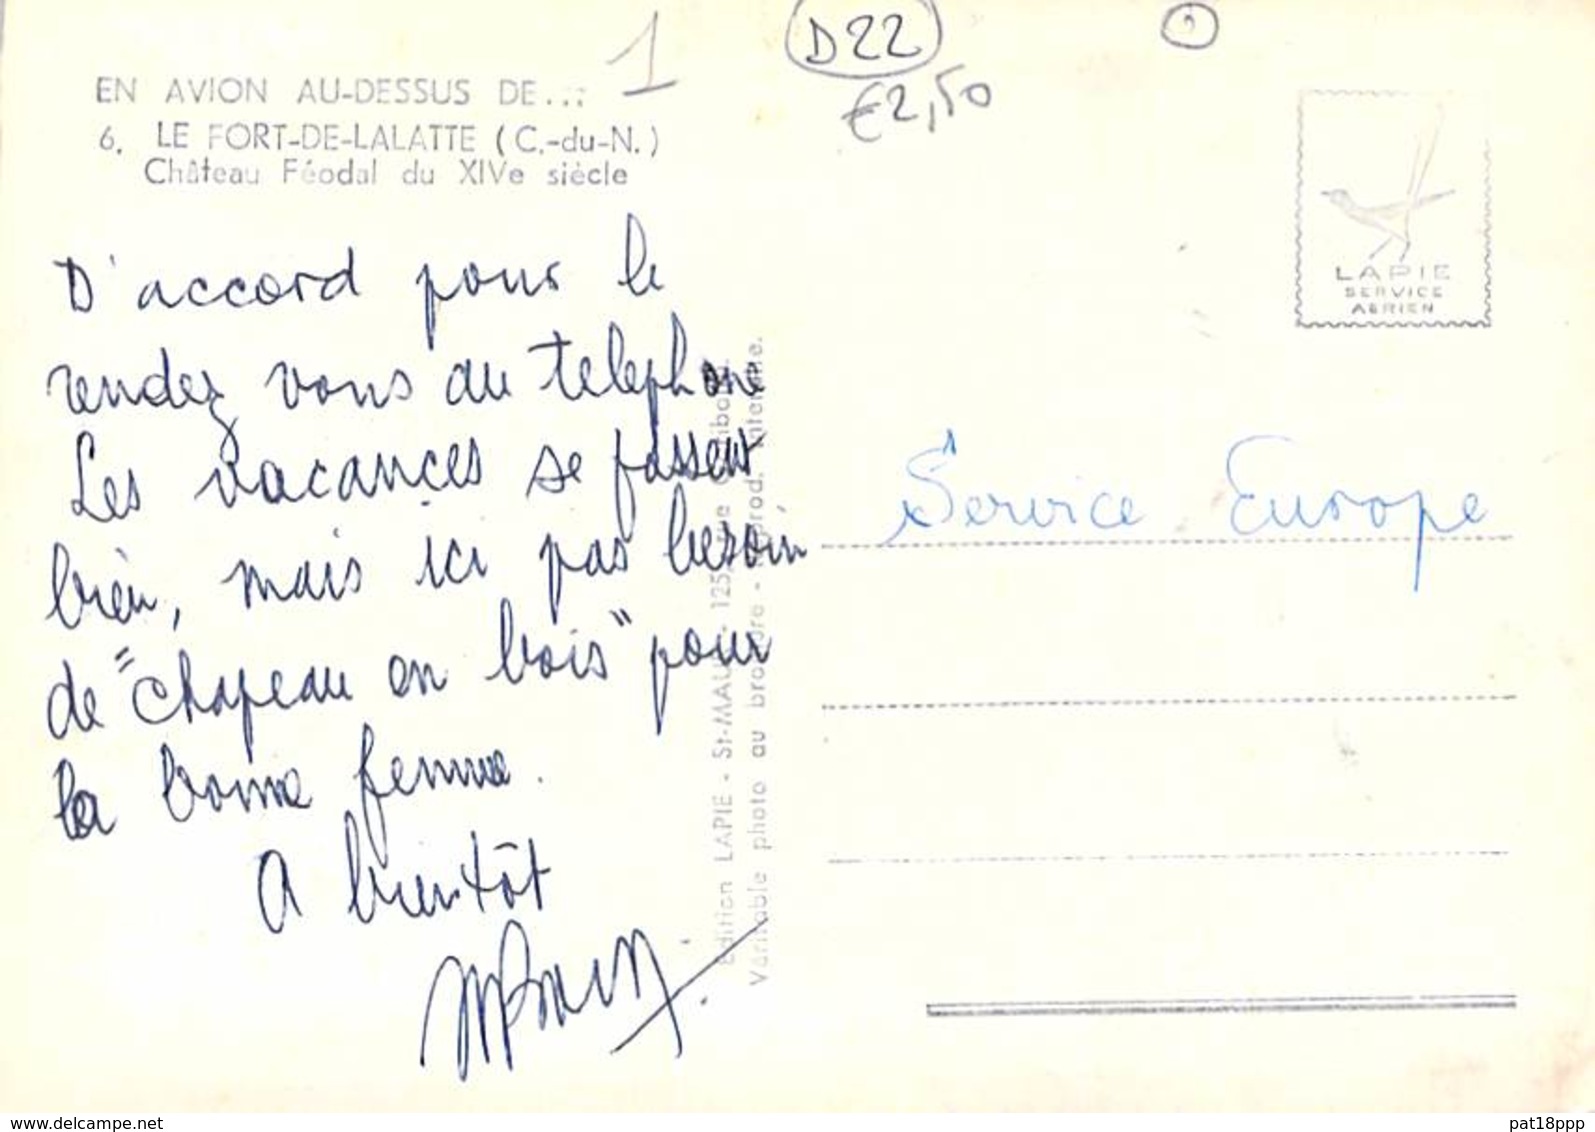 1
D22
€2,50
EN AVION AU-DESSUS DE...
6. LE FORT-DE-LALATTE (C.-du-N.)
Château Féodal du XIVe siècle
LAPIE
SERVICE
AERIEN
D'accord pour le
rendez vous au telephone
Les vacances se passent
bien, mais ici pas besoin
de "chapeau en bois" pour
la bonne femme.
A bientôt
Edition LAPIE - St-MAUR - 125, rue
Véritable photo au bromure - Reprod. interdite.
Service Europe
www.delcampe.net
pat18ppp